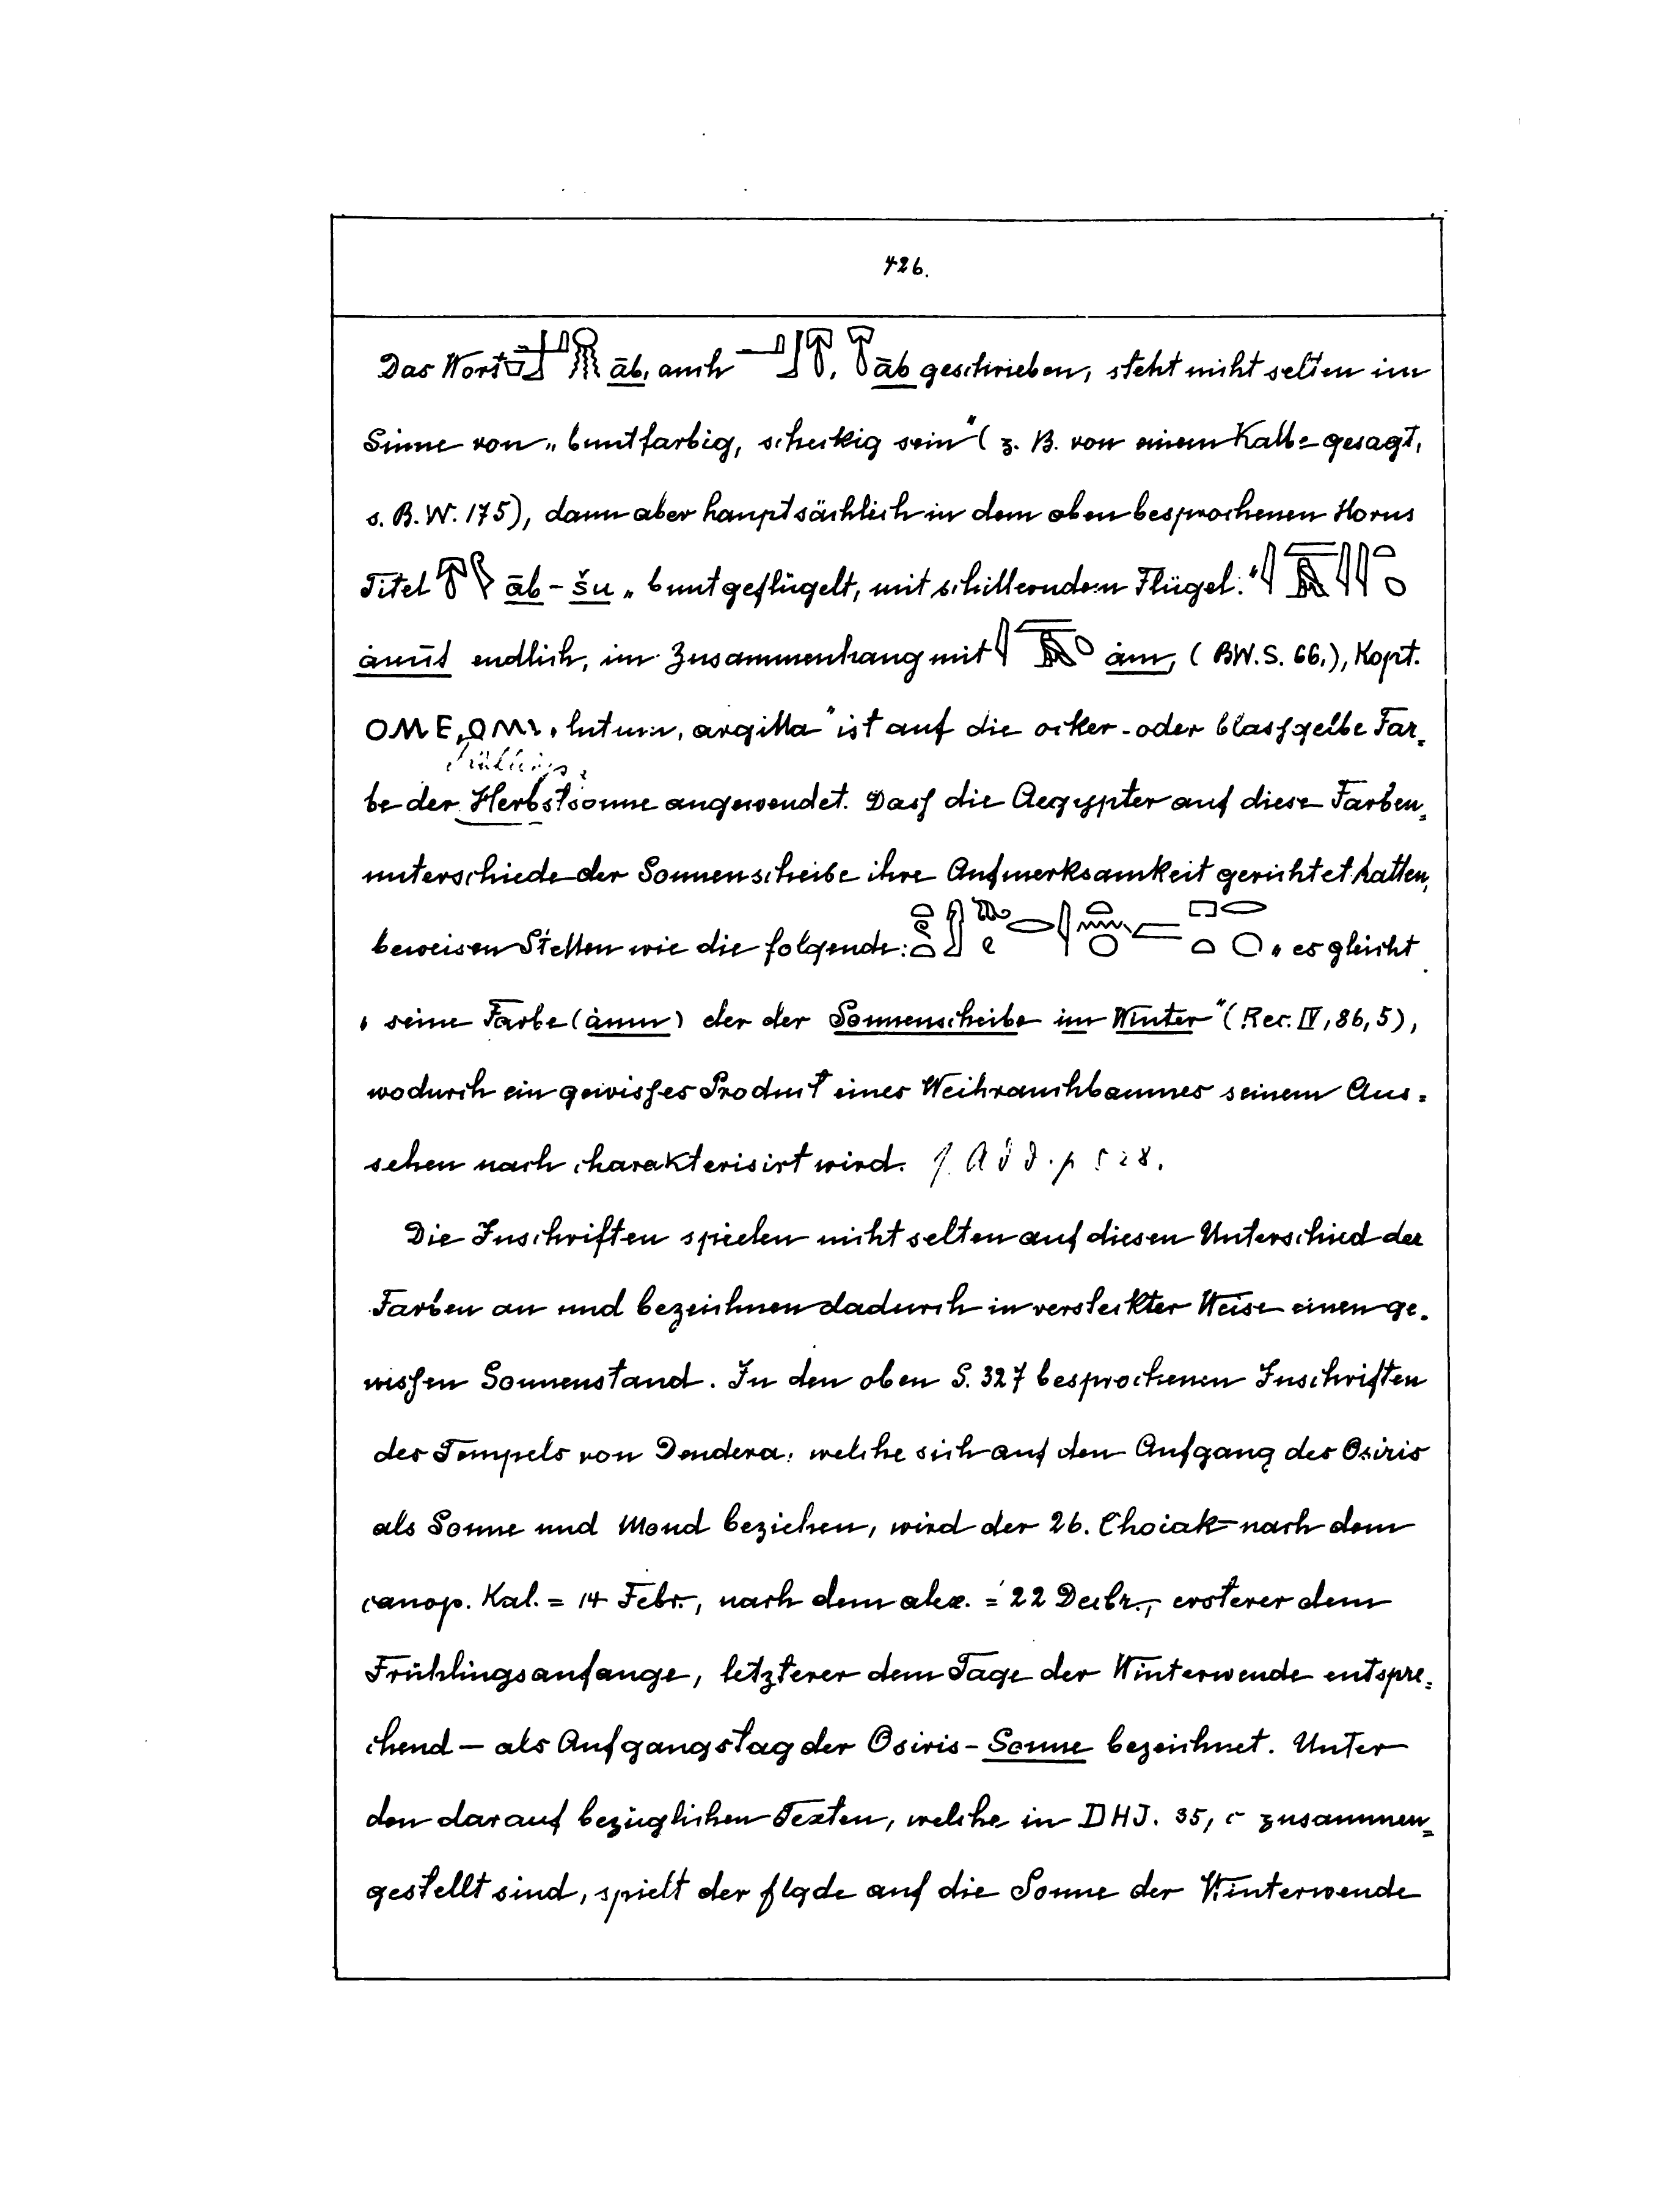 426.
Das Wort āb, auch , āb geschrieben, steht nicht selten im
Sinne von „buntfarbig, scheckig sein" (z. B. von einem Kalbe gesagt,
s. B.W. 175), dann aber hauptsächlich in dem oben besprochenen Horus
Titel āb-šu „buntgeflügelt, mit schillerndem Flügel."
endlich, im Zusammenhang mit ȧm, (BW. S. 66.), Kopt.
OME, OMI, „lutum, argilla" ist auf die ocker- oder blassgelbe Far-
Frühlings-
be der Herbstsonne angewendet. Dass die Aegypter auf diese Farben-
unterschiede der Sonnenscheibe ihre Aufmerksamkeit gerichtet hatten,
beweisen Stellen wie die folgende: „es gleicht
„seine Farbe (ȧnm) der der Sonnenscheibe im Winter" (Rec. IV, 86, 5),
wodurch ein gewisses Product eines Weihrauchbaumes seinem Aus-
sehen nach charakterisirt wird. f. Add. p 528.
Die Inschriften spielen nicht selten auf diesen Unterschied der
Farben an und bezeichnen dadurch in versteckter Weise einen ge-
wissen Sonnenstand. In den oben S. 327 besprochenen Inschriften
des Tempels von Dendera, welche sich auf den Aufgang des Osiris
als Sonne und Mond beziehen, wird der 26. Choiak – nach dem
canop. Kal. = 14 Febr., nach dem alex. = 22 Decbr., ersterer dem
Frühlingsanfange, letzterer dem Tage der Winterwende entspre-
chend – als Aufgangstag der Osiris-Sonne bezeichnet. Unter
den darauf bezüglichen Texten, welche in DHI. 35, c zusammen-
gestellt sind, spielt der flgde auf die Sonne der Winterwende